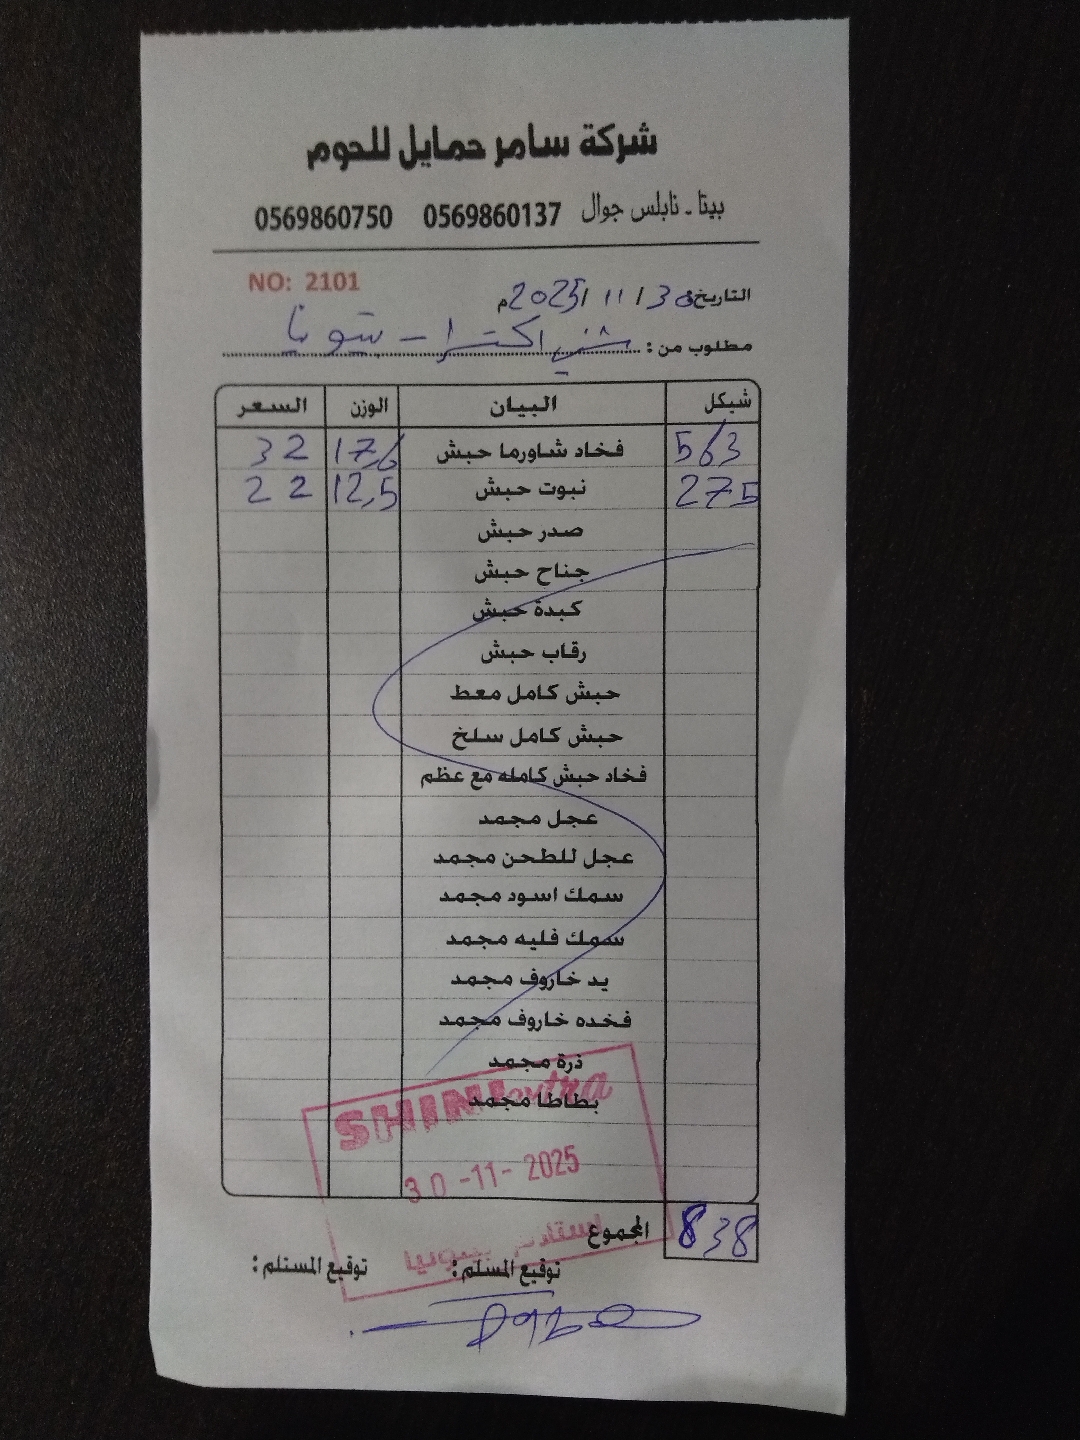 شركة سامر حمايل للحوم
بيتا - نابلس جوال 0569860137 0569860750
NO: 2101
التاريخ: 30 / 11 / 2025م
مطلوب من : شني اكسترا - بتونيا
شيكل البيان الوزن السعر
563 فخاد شاورما حبش 17,6 32
275 نبوت حبش 12,5 22
صدر حبش
جناح حبش
كبدة حبش
رقاب حبش
حبش كامل معط
حبش كامل سلخ
فخاد حبش كامله مع عظم
عجل مجمد
عجل للطحن مجمد
سمك اسود مجمد
سمك فليه مجمد
يد خاروف مجمد
فخده خاروف مجمد
ذرة مجمد
بطاطا مجمد
SHINI extra
30 -11- 2025
استلام بيتونيا
المجموع 838
توقيع المسلم : توقيع المستلم :